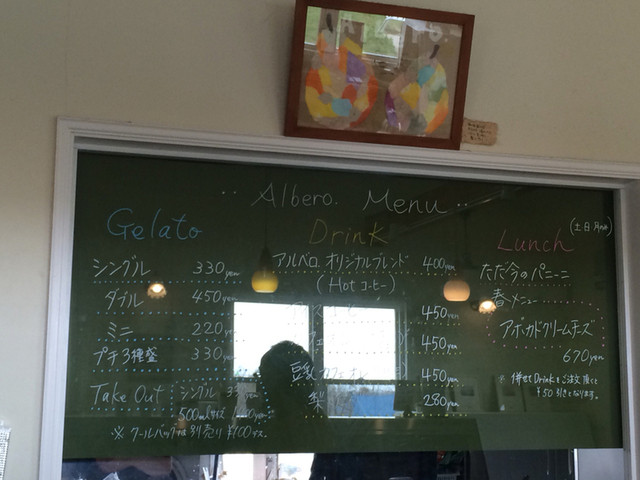 Albero. Menu
Gelato
シングル 330yen
ダブル 450yen
ミニ 220yen
プチ3種盛 330yen
Take Out : シングル
500mlサイズ
※クールバックは別売り ¥100です。
Drink
アルベロ オリジナルブレンド 400yen
(Hot コーヒー)
450yen
450yen
450yen
梨 280yen
Lunch (土日月のみ)
ただ今のパニーニ
春メニュー
アボカドクリームチーズ
670yen
※併せてDrinkをご注文頂くと
¥50引きとなります。